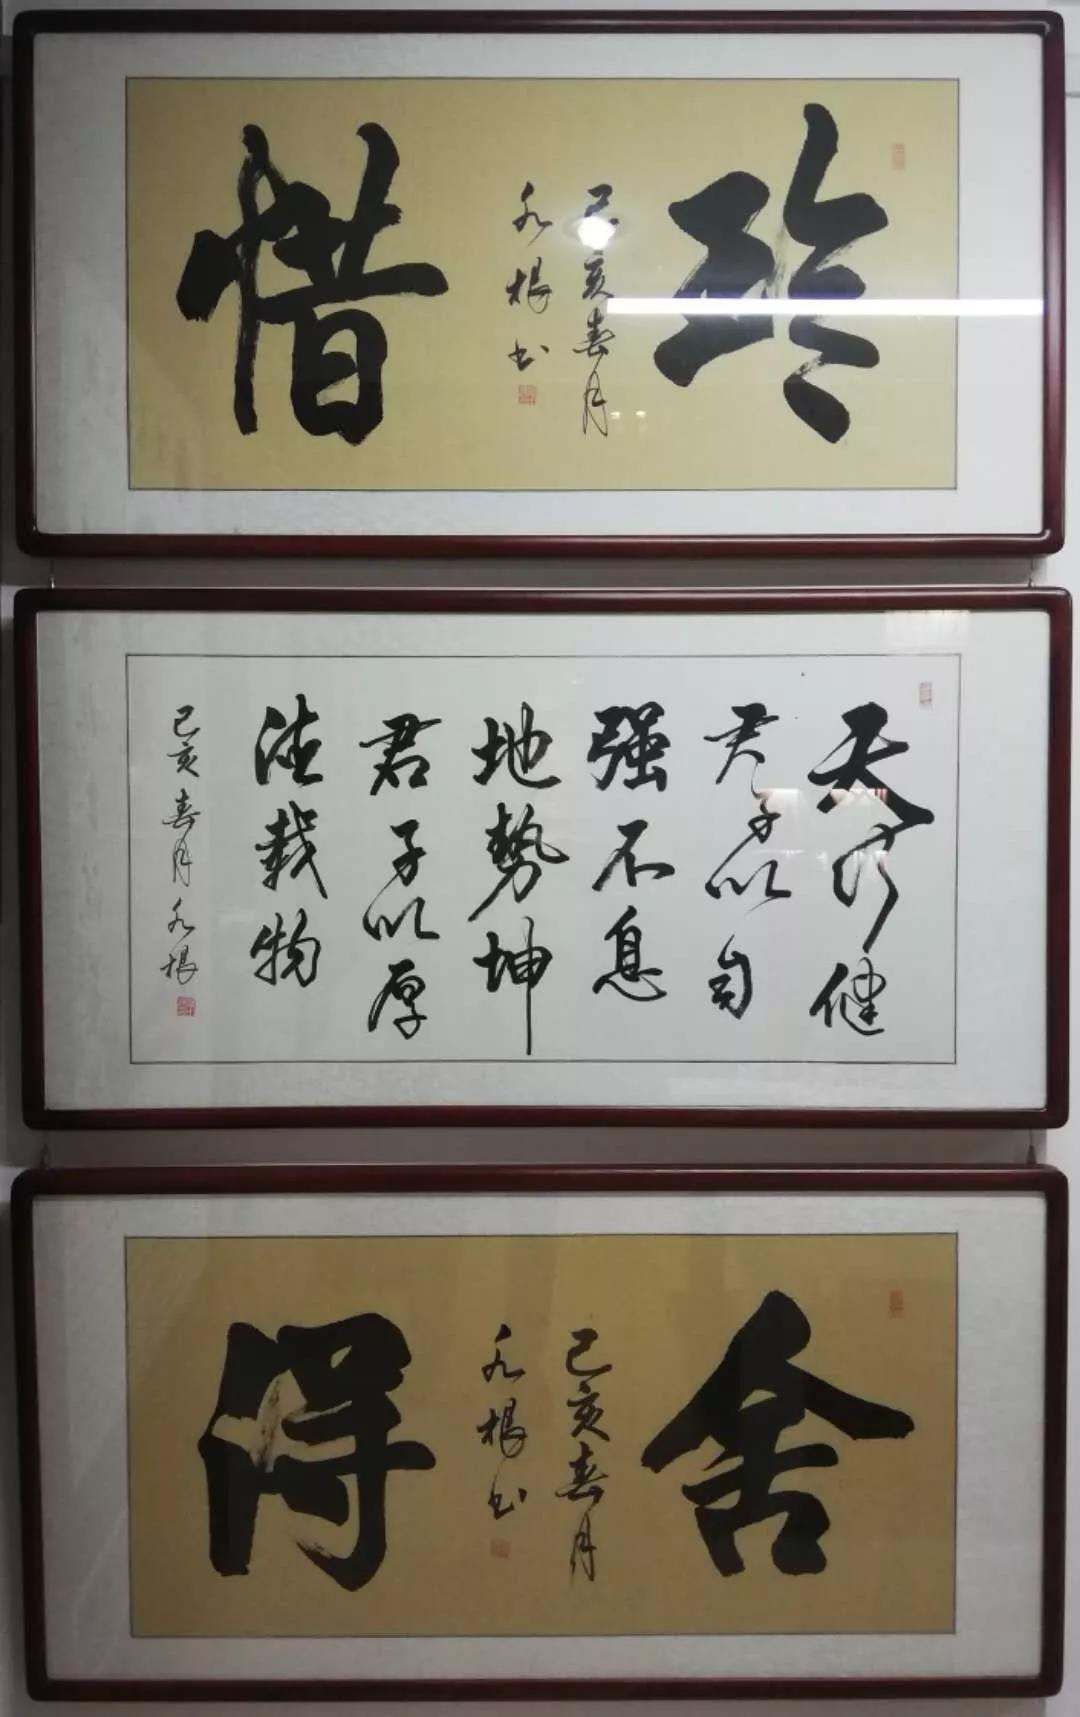 珍
己亥春月
永根书
惜
天行健
君子以自
强不息
地勢坤
君子以厚
德載物
己亥春月永根
舍
己亥春月
永根书
得